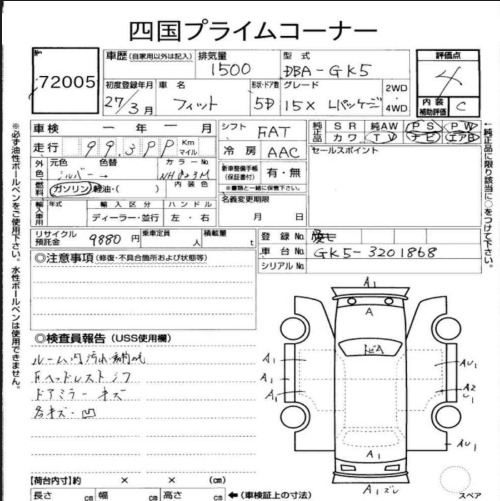 四国プライムコーナー
No 72005
車歴 (自家用以外は記入) 排気量 1500 型式 DBA-GK5 評価点 4
初度登録年月 27/3月 車名 フィット 形状・ドア数 5D グレード 15X Lパッケージ 2WD・4WD 内装補助評価 C
車検 年 月 シフト FAT 純正品 SR 純AW PS PW
カワ TV ナビ エアB
走行 99,3 Km マイル 冷房 AAC セールスポイント
外色 元色 シルバー 色替 カラーNo NH823M 内装色 新車整備手帳 (保証書付) 有・無
※書類と一緒に保管下さい。
燃料 ガソリン・軽油・( )
輸入車用 年式 輸入区分 ディーラー・並行 ハンドル 左・右 名義変更期限 月 日
リサイクル預託金 9880円 乗車定員 人 積載量 t 登録No
車台No GK5-3201868
シリアルNo
◎注意事項 (修復・不具合箇所および状態等)
◎検査員報告 (USS使用欄)
ルーム内汚れ
Fヘッドレスト
ドアミラーキズ
各キズ・凹
A1
A
トビA
A1 AU1
A1
A1 A2
U1
AU1
A1 ズレ
スペア
【荷台内寸】 × ×
長さ cm 幅 cm 高さ cm ←(車検証上の寸法)
※必ず油性ボールペンをご使用下さい。水性ボールペンは使用できません。
※純正品に限り該当に○をつけて下さい。